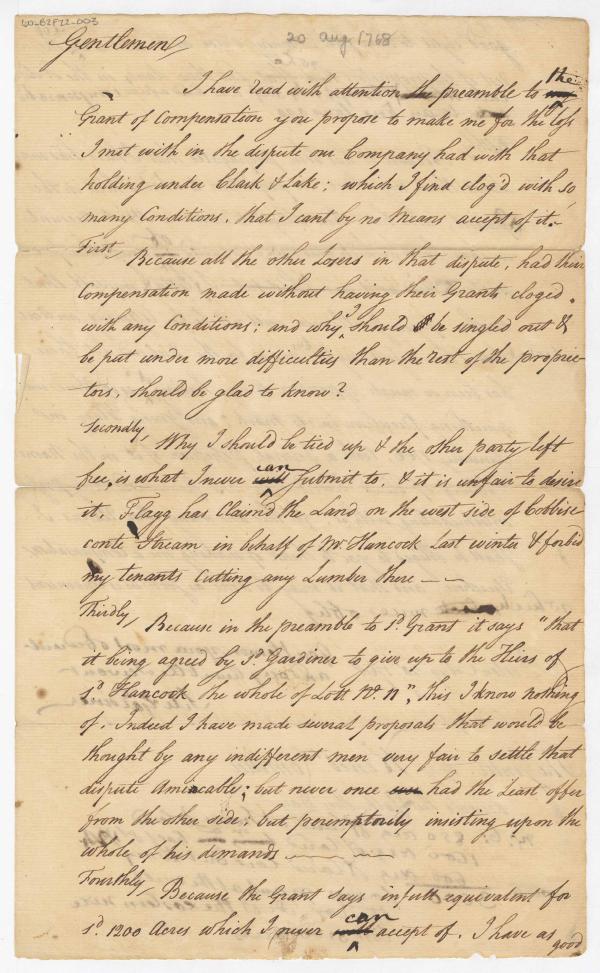 60-B2F22-003
20 Aug 1768
Gentlemen,
I have read with attention the preamble to the
Grant of Compensation you propose to make me for the loss
I met with in the dispute our Company had with that
holding under Clark & Lake; which I find clog'd with so
many Conditions, that I cant by no Means accept of it.
First, Because all the other Losers in that dispute, had their
Compensation made without having their Grants cloged
with any Conditions; and why I should be singled out &
be put under more difficulties than the rest of the proprie-
tors, should be glad to know?
Secondly, Why I should be tied up & the other party left
free, is what I never can Submit to, & it is unfair to desire
it. Flagg has Claim'd the Land on the west side of Cobbise
conte Stream in behalf of Mr. Hancock Last winter & forbid
my tenants Cutting any Lumber there — —
Thirdly, Because in the preamble to sd. Grant it says "that
it being agreed by sd. Gardiner to give up to the Heirs of
sd. Hancock the whole of Lott No. 11", this I know nothing
of. Indeed I have made several proposals that would be
thought by any indifferent men very fair to settle that
dispute Amicably; but never once had the Least offer
from the other side; but peremptorily insisting upon the
whole of his demands — — —
Fourthly, Because the Grant says in full equivalent for
sd. 1200 Acres which I never can accept of. I have as
good